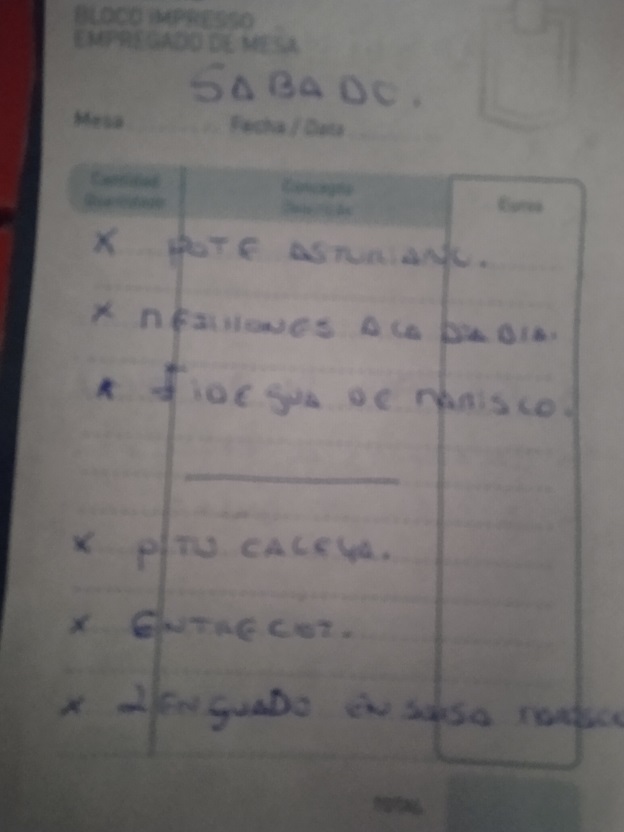 BLOCO IMPRESSO
EMPREGADO DE MESA
SABADO.
Mesa Fecha / Data
Cantidad Concepto Euros
Quantidade Descrição
X POTE ASTURIANO.
X MEJILLONES A LA DIABLA.
X FIDEGUA DE MARISCO.
X PITU CALEYA.
X ENTRECOT.
X LENGUADO EN SALSA MARISCO
TOTAL